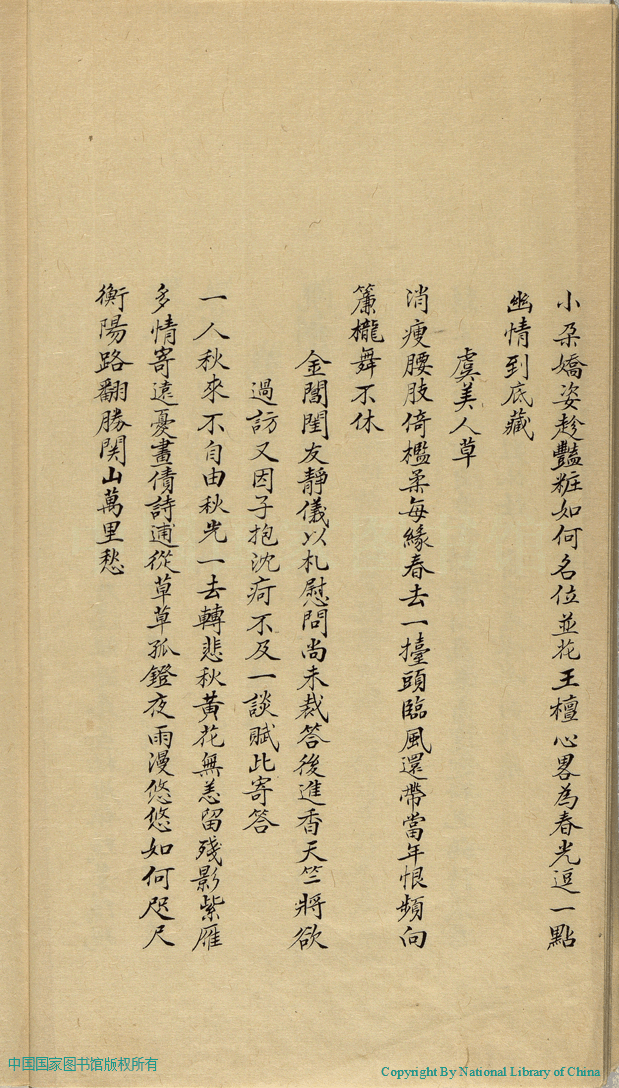 小朶嬌姿趁豔粧如何名位並花王檀心畧為春光逗一點
幽情到底藏
虞美人草
消瘦腰肢倚檻柔每緣春去一擡頭臨風還帶當年恨頻向
簾櫳舞不休
金閶閨友靜儀以札慰問尚未裁答後進香天竺將欲
過訪又因子抱沈疴不及一談賦此寄答
一人秋來不自由秋光一去轉悲秋黃花無恙留殘影紫雁
多情寄遠憂畫債詩逋從草草孤鐙夜雨漫悠悠如何咫尺
衡陽路翻勝関山萬里愁
中国国家图书馆版权所有
Copyright By National Library of China